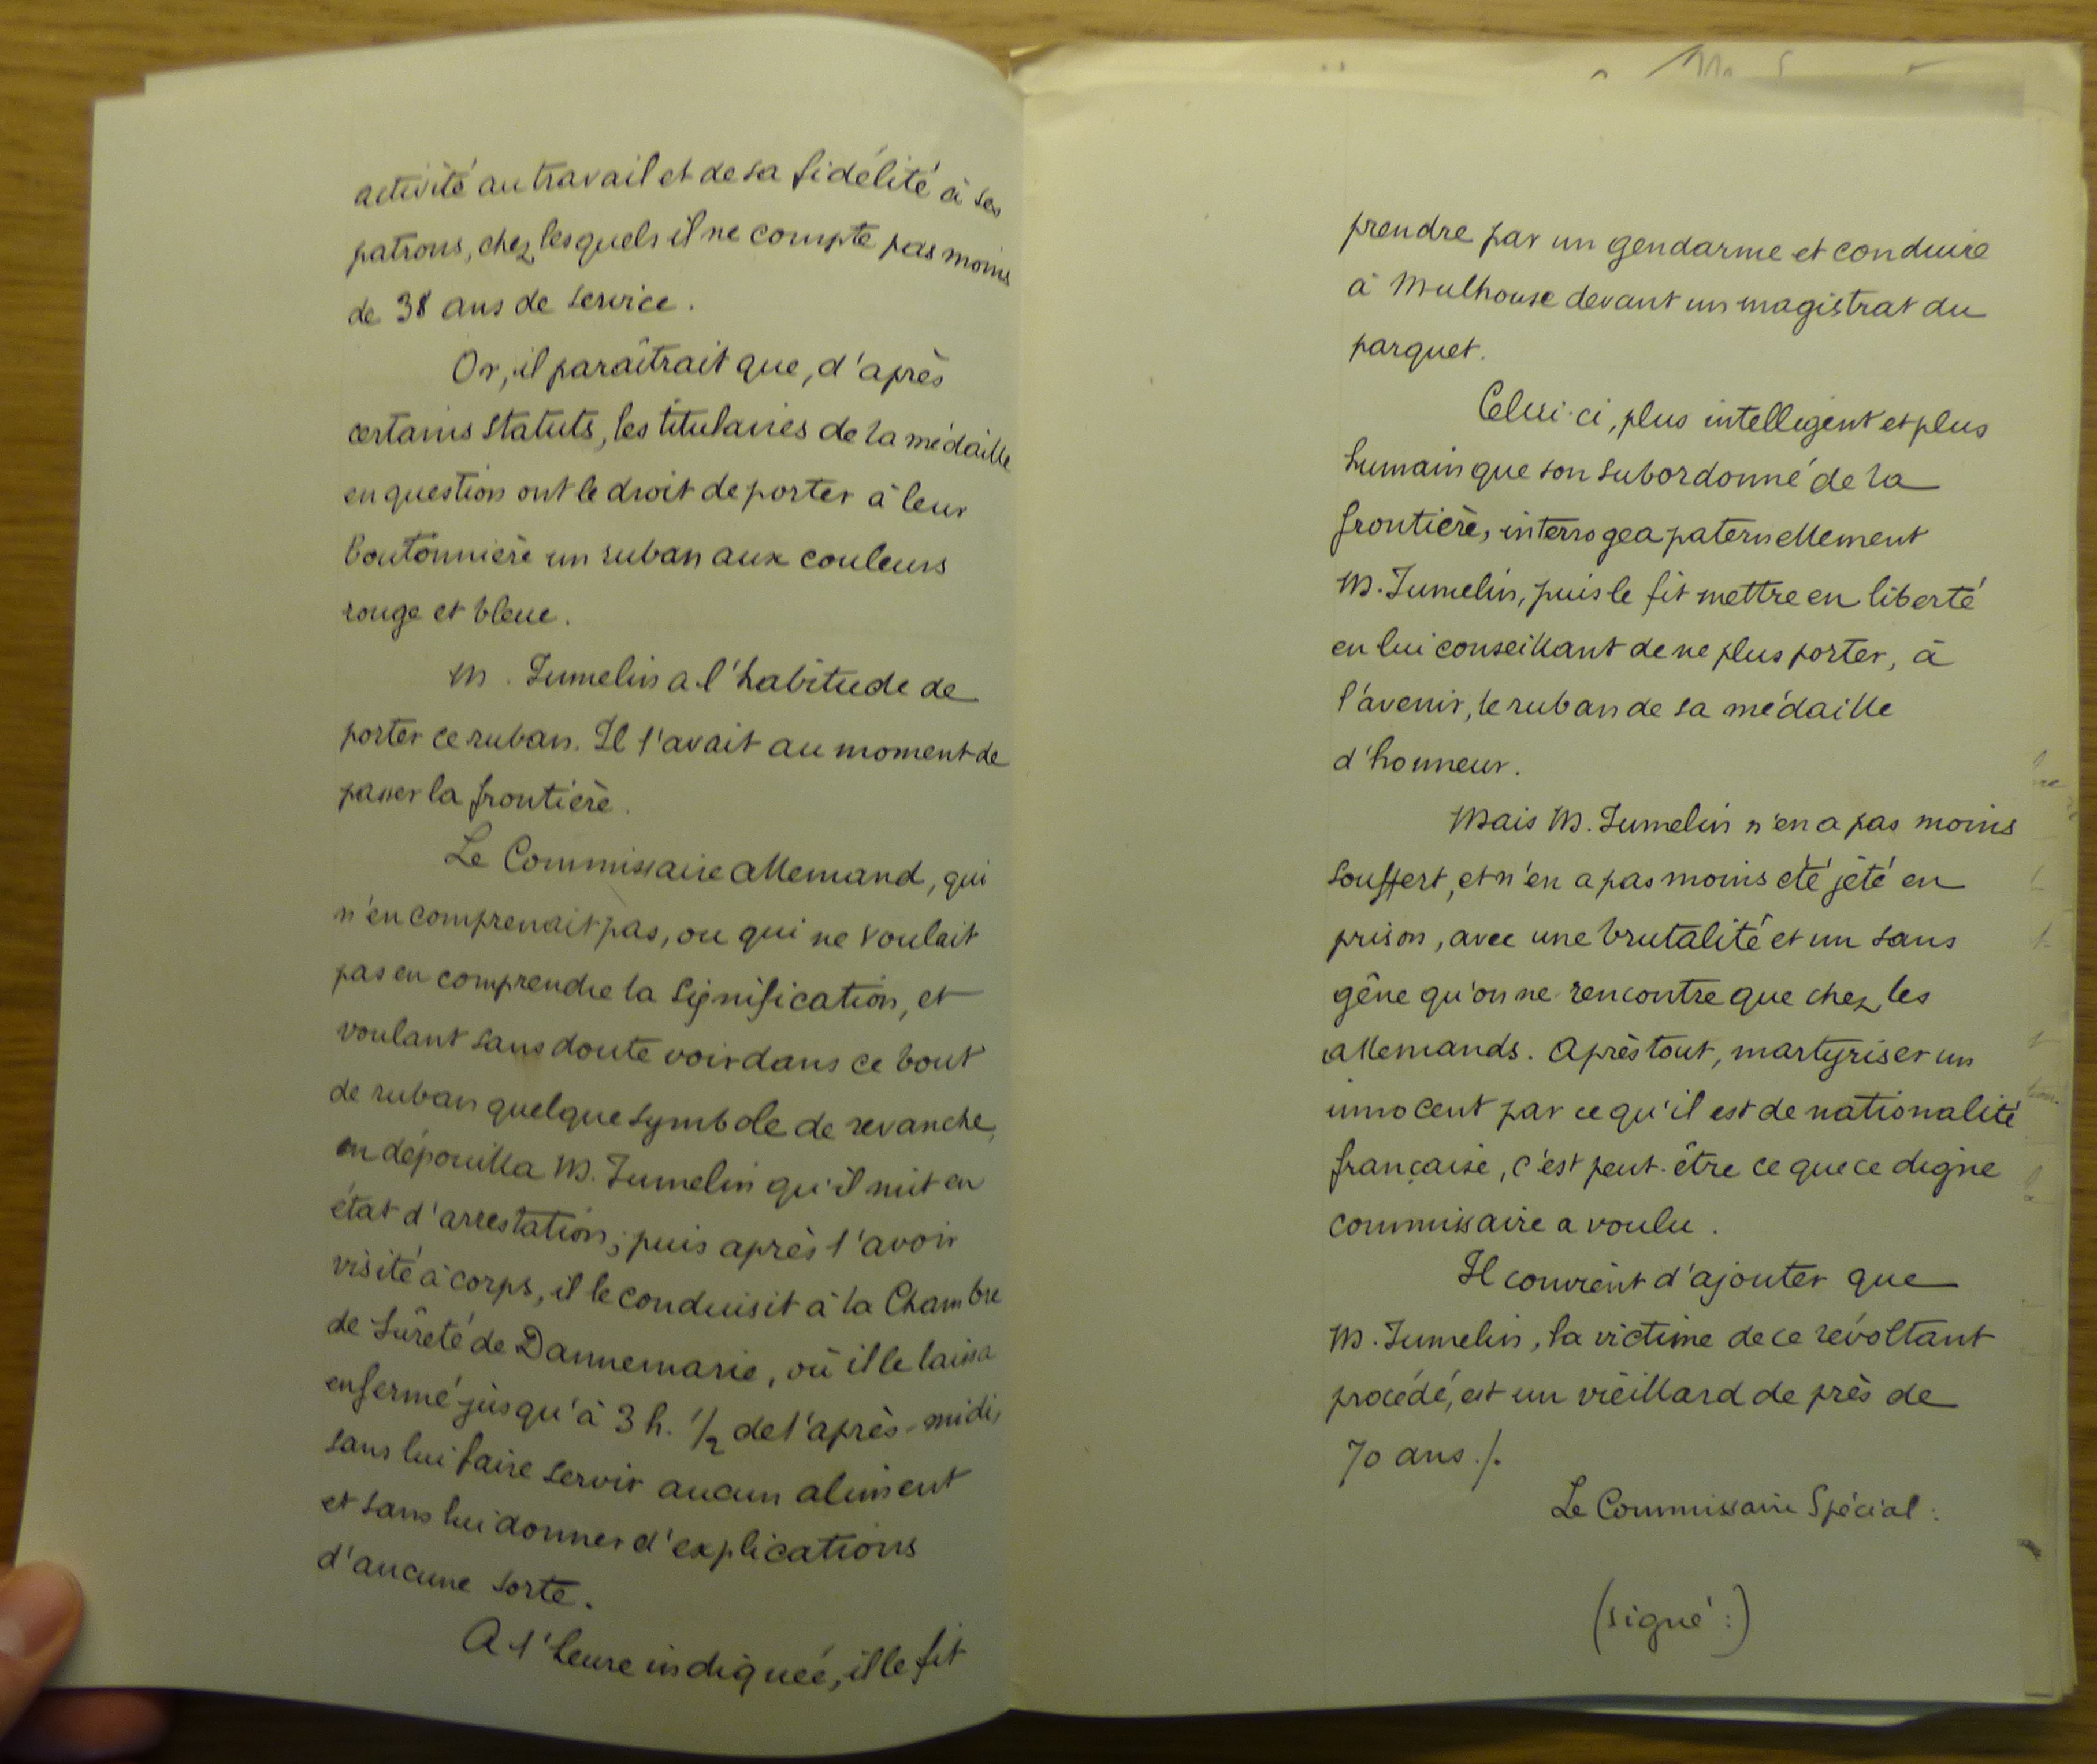 activité au travail et de sa fidélité à ses
patrons, chez lesquels il ne compte pas moins
de 38 ans de service.
Or, il paraîtrait que, d'après
certains statuts, les titulaires de la médaille
en question ont le droit de porter à leur
boutonnière un ruban aux couleurs
rouge et bleue.
M. Jumelin a l'habitude de
porter ce ruban. Il l'avait au moment de
passer la frontière.
Le Commissaire allemand, qui
n'en comprenait pas, ou qui ne voulait
pas en comprendre la signification, et
voulant sans doute voir dans ce bout
de ruban quelque symbole de revanche,
en dépouilla M. Jumelin qu'il mit en
état d'arrestation; puis après l'avoir
visité à corps, il le conduisit à la Chambre
de Sûreté de Dannemarie, où il le laissa
enfermé jusqu'à 3 h. 1/2 de l'après-midi,
sans lui faire servir aucun aliment
et sans lui donner d'explications
d'aucune sorte.
A l'heure indiquée, il le fit
prendre par un gendarme et conduire
à Mulhouse devant un magistrat du
parquet.
Celui-ci, plus intelligent et plus
humain que son subordonné de la
frontière, interrogea paternellement
M. Jumelin, puis le fit mettre en liberté
en lui conseillant de ne plus porter, à
l'avenir, le ruban de sa médaille
d'honneur.
Mais M. Jumelin n'en a pas moins
souffert, et n'en a pas moins été jeté en
prison, avec une brutalité et un sans
gêne qu'on ne rencontre que chez les
allemands. Après tout, martyriser un
innocent par ce qu'il est de nationalité
française, c'est peut-être ce que ce digne
commissaire a voulu.
Il convient d'ajouter que
M. Jumelin, la victime de ce révoltant
procédé, est un vieillard de près de
70 ans./.
Le Commissaire Spécial:
(signé:)